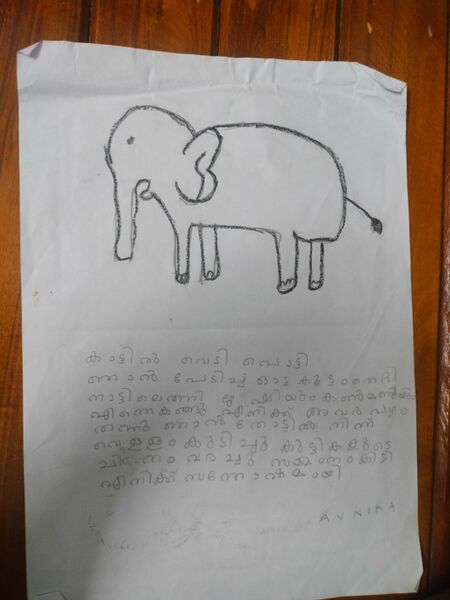 കാട്ടിൽ വെടി പൊട്ടി
ഞാൻ പേടിച്ച് ഓടി കൂട്ടംതെറ്റി
നാട്ടിലെത്തി
എന്നെകണ്ടു എനിക്ക് അവർ പഴം
തന്നു ഞാൻ തോട്ടിൽ നിന്ന്
വെള്ളം കുടിച്ചു കുട്ടികളുടെ
ചിത്രം വരച്ചു സമ്മാനംകിട്ടി
എനിക്ക് സന്തോഷമായി
AVNIKA